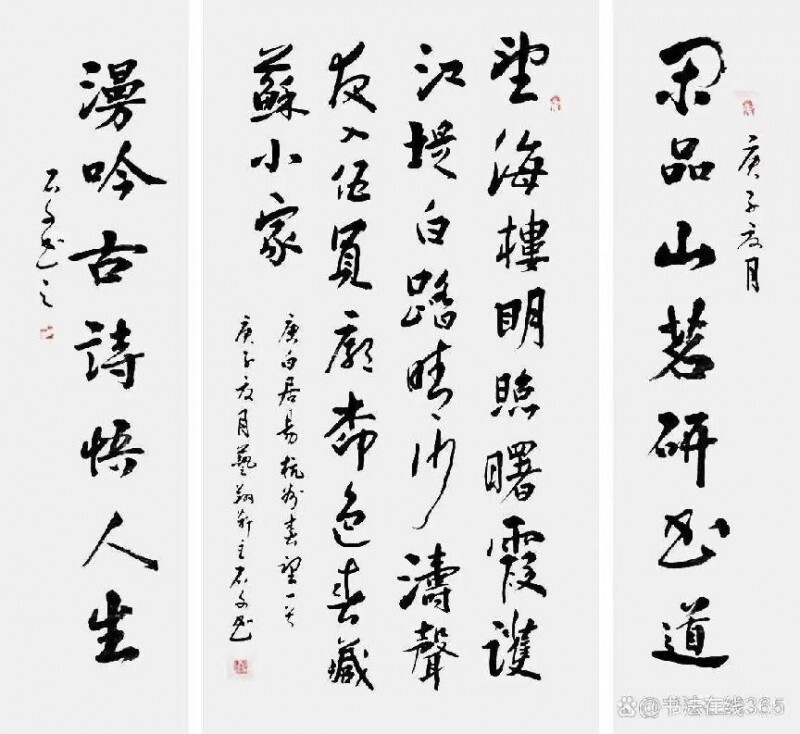 閑品山茗研書道
庚子夏月
望海樓明照曙霞護
江堤白踏晴沙濤聲
夜入伍員廟柳色春藏
蘇小家
唐白居易杭州春望一首
庚子夏月藝翔軒主石文書
漫吟古詩悟人生
石文書之
@书法在线385